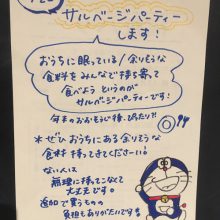 サルベージパーティー
します!
おうちに眠っている/余りそうな
食料をみんなで持ち寄って
食べようというのが
サルベージパーティーです!
*ぜひおうちにある余りそうな
食材持ってきてください!
ない人は
無理に持ってこなくて
大丈夫です。
追加で買うものの
負担もありがたいです